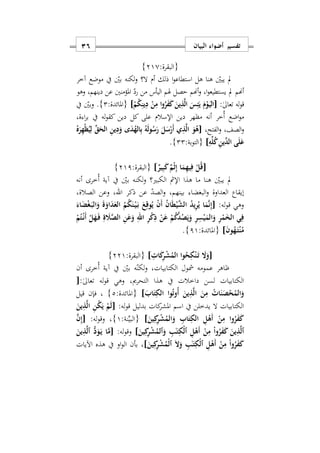 ٣٦ تفسير أضواء البيان
{البقرة:٢١٧}
لم يبيّن هنا هل استطاعوا ذلك أم لا؟ ولكنه بيّن في موضع آخر
أنهم لم يستطيعوا، وأنهم حصل لهم اليأس من ردّ المؤمنين عن دينهم، وهو
قوله تعالى: [الْيَوْمَ يَئِسَ الَّذِينَ كَفَرُوا مِنْ دِينِكُمْ] {المائدة:٣}. وبيّن في
مواضع أُخر أنه مظهر دين الإسلام على كل دين كقوله في براءة،
والصف، والفتح، [هُوَ الَّذِي أَرْسَلَ رَسُولَهُ بِالْهُدَى وَدِينِ الْحَقِّ لِيُظْهِرَهُ
عَلَى الدِّينِ كُلِّهِ] {التوبة:٣٣}.
[قُلْ فِيهِمَا إِثْمٌ كَبِيرٌ] {البقرة:٢١٩}
لم يبيّن هنا ما هذا الإثم الكبير؟ ولكنه بيّن في آية أُخرى أنه
إيقاع العداوة والبغضاء بينهم، والصدّ عن ذكر الله، وعن الصلاة،
وهي قوله: [إِنَّمَا يُرِيدُ الشَّيْطَانُ أَنْ يُوقِعَ بَيْنَكُمُ الْعَدَاوَةَ وَالْبَغْضَاءَ
فِي الْخَمْرِ وَالْمَيْسِرِ وَيَصُدَّكُمْ عَنْ ذِكْرِ اللهِ وَعَنِ الصَّلَاةِ فَهَلْ أَنْتُمْ
مُنْتَهُونَ] {المائدة:٩١}.
[وَلَا تَنْكِحُوا الْمُشْرِكَاتِ] {البقرة:٢٢١}
ظاهر عمومه شمول الكتابيات، ولكنّه بيّن في آية أُخرى أن
الكتابيات لسن داخلات في هذا التحريم، وهي قوله تعالى:[
وَالْمُحْصَنَاتُ مِنَ الَّذِينَ أُوتُوا الْكِتَابَ] {المائدة:٥}، فإن قيل
الكتابيات لا يدخلن في اسم المشركات بدليل قوله: [لَمْ يَكُنِ الَّذِينَ
كَفَرُوا مِنْ أَهْلِ الْكِتَابِ وَالْمُشْرِكِينَ] {البيّنة:١}، وقوله: [إِنَّ
الَّذِينَ كَفَرُوا مِنْ أَهْلِ الْكِتَابِ وَالْمُشْرِكِينَ] وقوله: [مَا يَوَدُّ الَّذِينَ
كَفَرُوا مِنْ أَهْلِ الْكِتَابِ وَلَا الْمُشْرِكِينَ]، بأن الواو في هذه الآيات